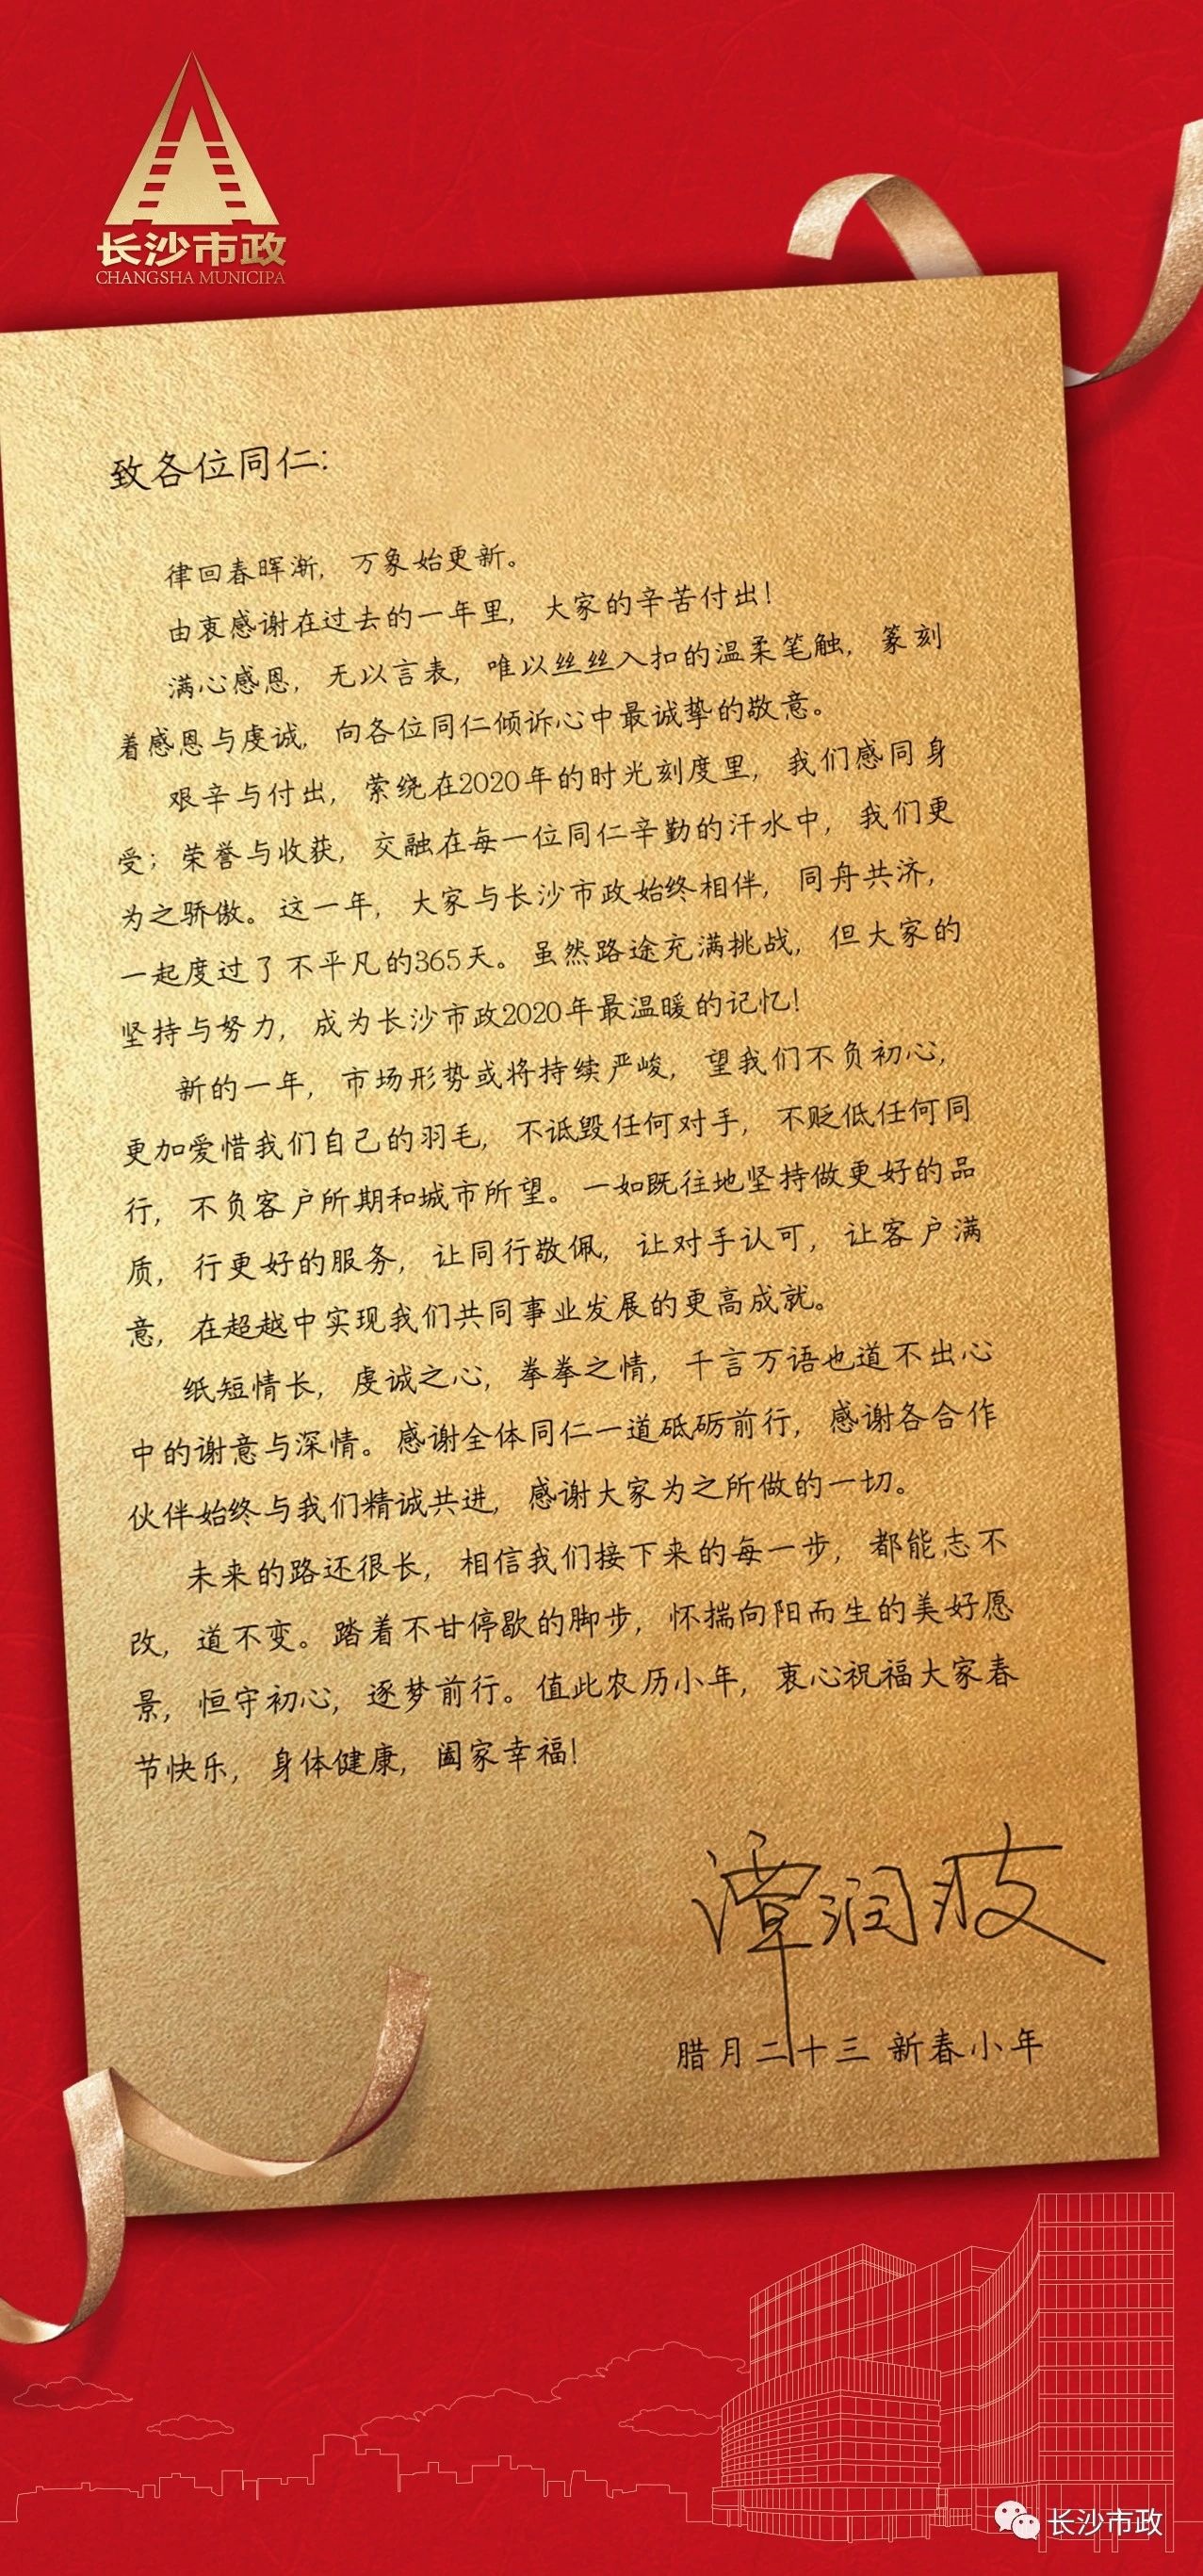 长沙市政
CHANGSHA MUNICIPA
致各位同仁：
律回春晖渐，万象始更新。
由衷感谢在过去的一年里，大家的辛苦付出！
满心感恩，无以言表，唯以丝丝入扣的温柔笔触，篆刻
着感恩与虔诚，向各位同仁倾诉心中最诚挚的敬意。
艰辛与付出，萦绕在2020年的时光刻度里，我们感同身
受；荣誉与收获，交融在每一位同仁辛勤的汗水中，我们更
为之骄傲。这一年，大家与长沙市政始终相伴，同舟共济，
一起度过了不平凡的365天。虽然路途充满挑战，但大家的
坚持与努力，成为长沙市政2020年最温暖的记忆！
新的一年，市场形势或将持续严峻，望我们不负初心，
更加爱惜我们自己的羽毛，不诋毁任何对手，不贬低任何同
行，不负客户所期和城市所望。一如既往地坚持做更好的品
质，行更好的服务，让同行敬佩，让对手认可，让客户满
意，在超越中实现我们共同事业发展的更高成就。
纸短情长，虔诚之心，拳拳之情，千言万语也道不出心
中的谢意与深情。感谢全体同仁一道砥砺前行，感谢各合作
伙伴始终与我们精诚共进，感谢大家为之所做的一切。
未来的路还很长，相信我们接下来的每一步，都能志不
改，道不变。踏着不甘停歇的脚步，怀揣向阳而生的美好愿
景，恒守初心，逐梦前行。值此农历小年，衷心祝福大家春
节快乐，身体健康，阖家幸福！
谭润波
腊月二十三 新春小年
长沙市政